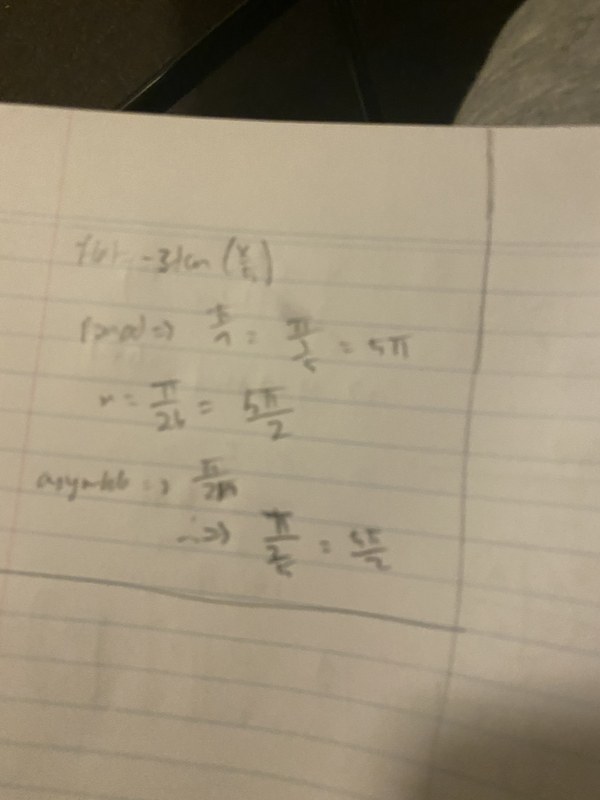 f(x) -3tan (x/5)
period => π/n = π/(1/5) = 5π
x = π/2b = 5π/2
asymptote => π/2n
=> π/(2/5) = 5π/2